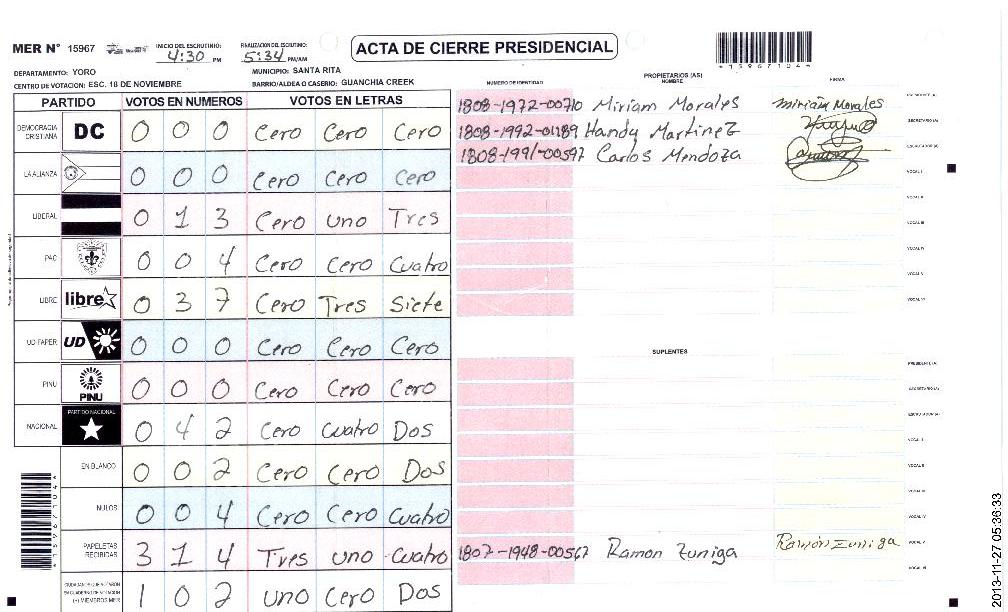 MER N° 15967
INICIO DEL ESCRUTINIO: 4:30 PM
FINALIZACION DEL ESCRUTINIO: 5:34 PM/AM
ACTA DE CIERRE PRESIDENCIAL
DEPARTAMENTO: YORO
MUNICIPIO: SANTA RITA
CENTRO DE VOTACION: ESC. 18 DE NOVIEMBRE
BARRIO/ALDEA O CASERIO: GUANCHIA CREEK
NUMERO DE IDENTIDAD
PROPIETARIOS (AS)
NOMBRE
FIRMA
PARTIDO VOTOS EN NUMEROS VOTOS EN LETRAS
DEMOCRACIA CRISTIANA DC 0 0 0 Cero Cero Cero
LA ALIANZA 0 0 0 Cero Cero Cero
LIBERAL 0 1 3 Cero uno Tres
PAC 0 0 4 Cero Cero Cuatro
LIBRE libre 0 3 7 Cero Tres Siete
UD-FAPER UD 0 0 0 Cero Cero Cero
PINU PINU 0 0 0 Cero Cero Cero
NACIONAL PARTIDO NACIONAL 0 4 2 Cero Cuatro Dos
EN BLANCO 0 0 2 Cero Cero Dos
NULOS 0 0 4 Cero Cero Cuatro
PAPELETAS RECIBIDAS 3 1 4 Tres uno Cuatro
CIUDADANOS QUE VOTARON EN CUADERNO DE VOTACION (+) MIEMBROS MER 1 0 2 uno Cero Dos
1808-1972-00710 Miriam Morales Miriam Morales
1808-1992-01189 Handy Martinez
1808-1991-00597 Carlos Mendoza
SECRETARIO (A)
ESCRUTADOR (A)
VOCAL I
VOCAL II
VOCAL III
VOCAL IV
VOCAL V
VOCAL VI
SUPLENTES
PRESIDENTE (A)
SECRETARIO (A)
ESCRUTADOR (A)
VOCAL I
VOCAL II
VOCAL III
VOCAL IV
1807-1948-00567 Ramon Zuniga Ramón Zuniga VOCAL V
VOCAL VI
2013-11-27 05:36:33